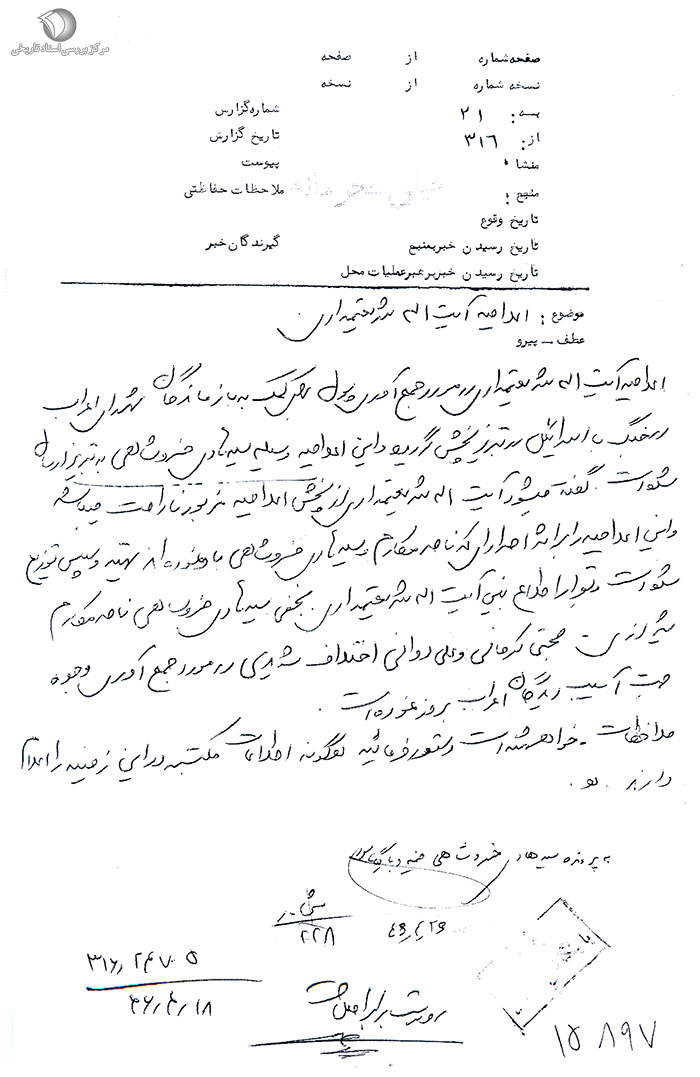 مرکز بررسی اسناد تاریخی
صفحه شماره از صفحه
نسخه شماره از نسخه
به: ۲۱ شماره گزارش
از: ۳۱۶ تاریخ گزارش
منشاء پیوست
منبع: ملاحظات حفاظتی
خیلی محرمانه
تاریخ وقوع
تاریخ رسیدن خبر بمنبع گیرندگان خبر
تاریخ رسیدن خبر برهبر عملیات محل
موضوع: اعلامیه آیت اله شریعتمداری
عطف – پیرو
اعلامیه آیت اله شریعتمداری در مورد جمع آوری پول برای کمک به بازماندگان شهدای اعراب
در جنگ با اسرائیل در تبریز پخش گردیده و این اعلامیه وسیله سید هادی خسروشاهی به تبریز ارسال
شده است. گفته میشود آیت اله شریعتمداری از پخش اعلامیه مزبور ناراحت میباشد
و این اعلامیه را بر اثر اصراری که ناصر مکارم و سید هادی خسروشاهی نموده‌اند تهیه و سپس توزیع
شده است و قرار اطلاع بین آیت اله شریعتمداری. بخفی سید هادی خسروشاهی ناصر مکارم
شیرازی حجتی کرمانی و علی دوانی اختلاف شدیدی در مورد جمع آوری وجوه
جهت آسیب دیدگان اعراب بروز نموده است.
ملاحظات - خواهشمند است دستور فرمائید هرگونه اطلاعات مکتسبه در این زمینه را اعلام
دارند.
به پرونده سید هادی خسروشاهی ضمیمه و بایگانی شود
۲۲۸
۴۶٫۴٫۲۶
۳۱۶٫۲۴۷۰۵
۴۶٫۴٫۱۸
رونوشت برابر اصل است
۱۵۸۹۷